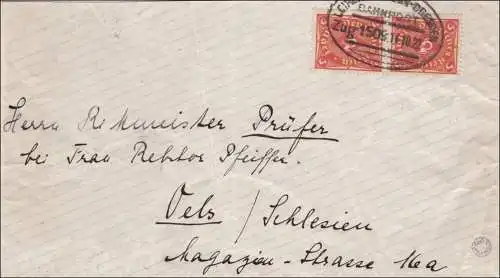 BAHNPOST
Zug 1505
Herrn Rittmeister Prüfer
bei Frau Rektor Pfeiffer.
Oels / Schlesien
Magazin-Strasse 16a